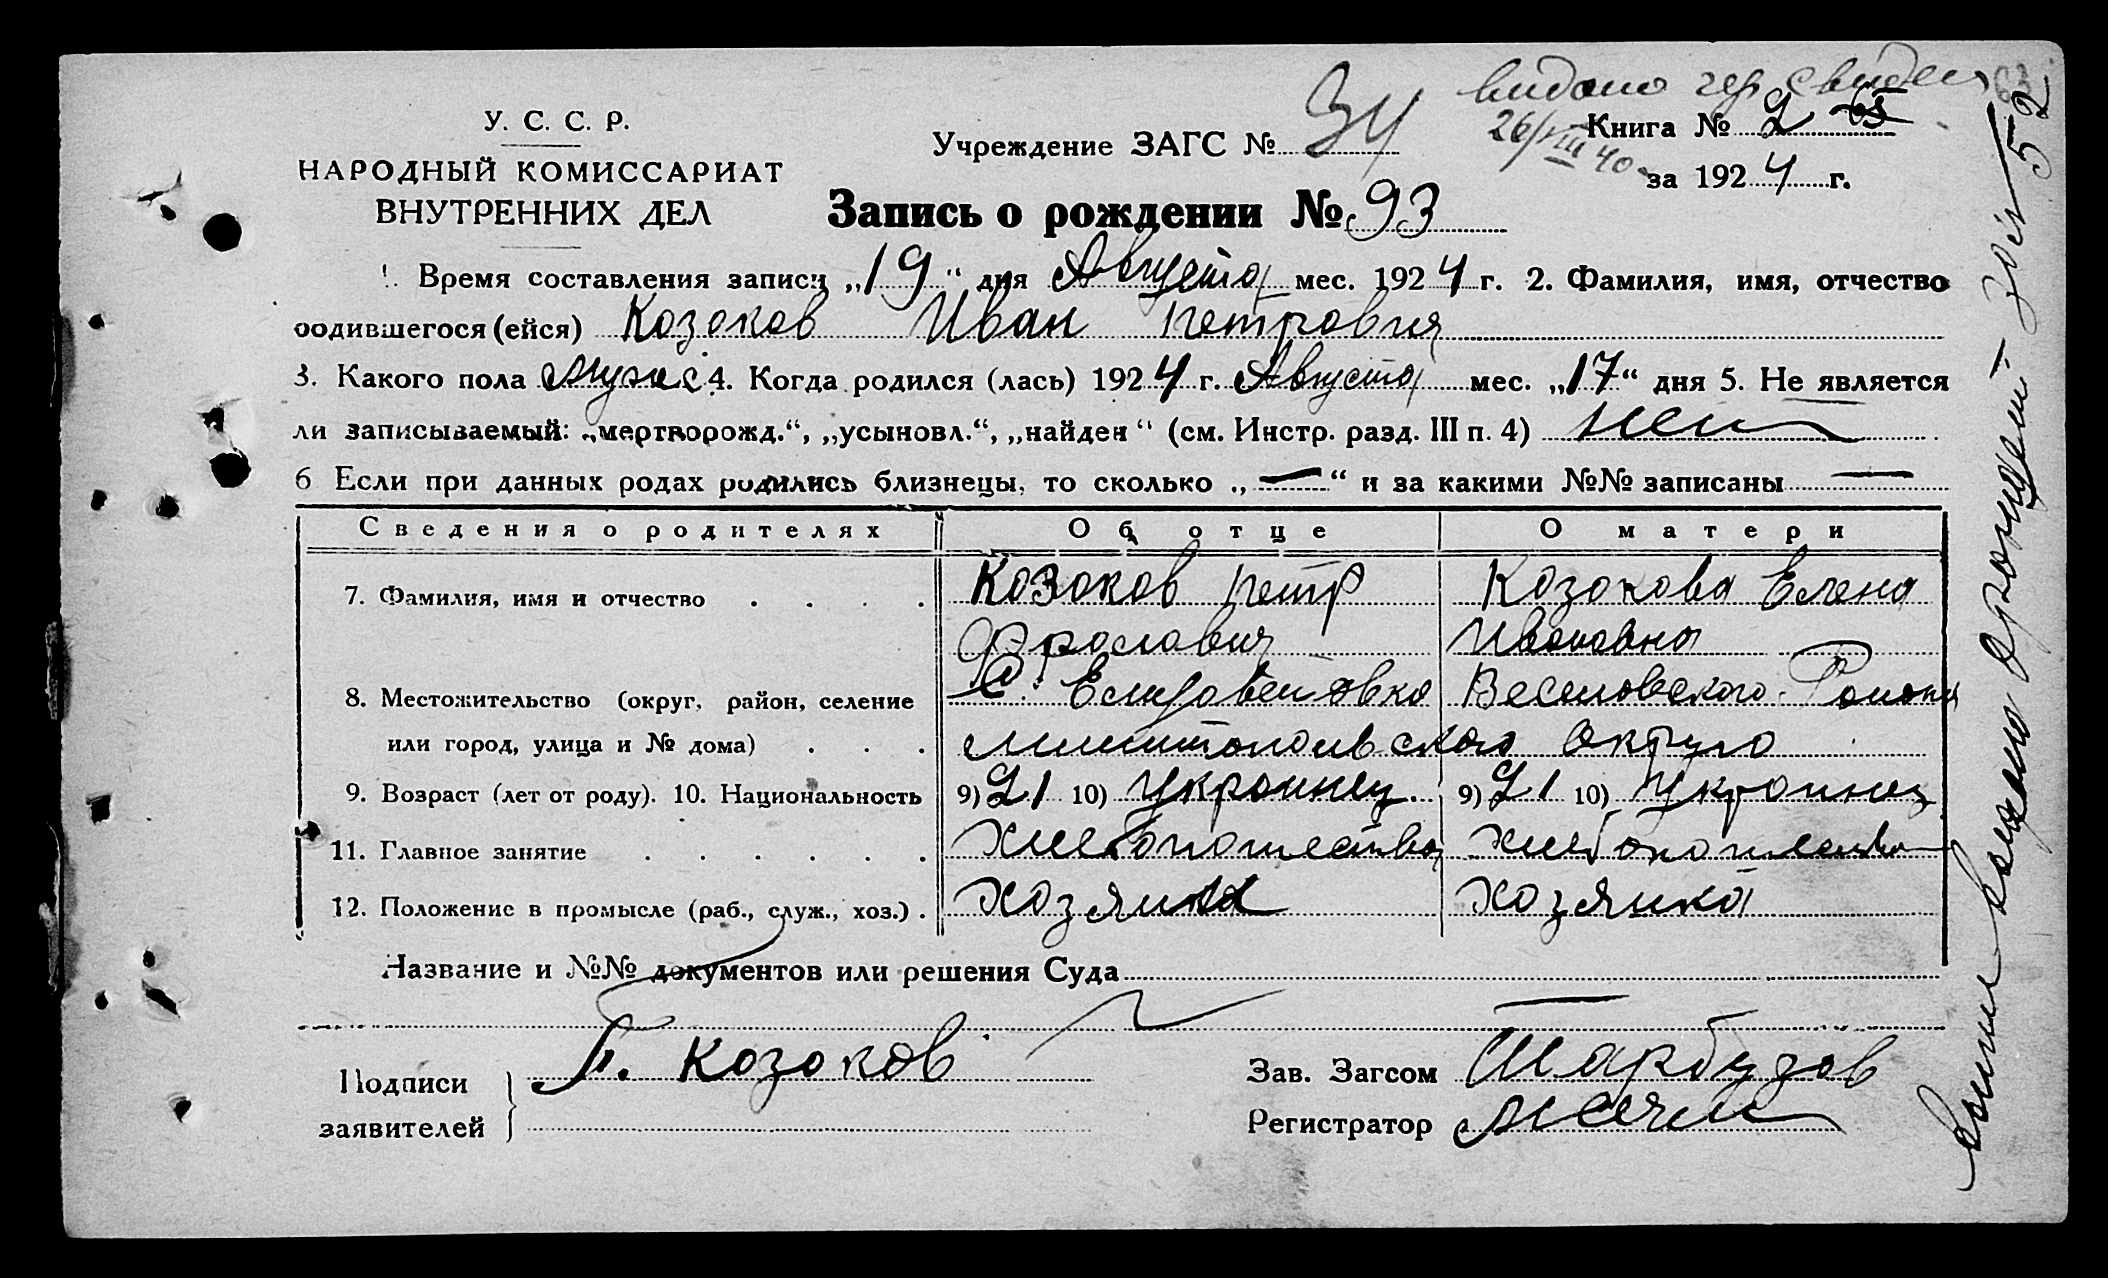 видано чер. свидет
26/VIII 40
У. С. С. Р.
НАРОДНЫЙ КОМИССАРИАТ
ВНУТРЕННИХ ДЕЛ
Учреждение ЗАГС №
Книга № 2
за 1924 г.
Запись о рождении № 93
1. Время составления записи „19“ дня Августа мес. 1924 г. 2. Фамилия, имя, отчество
родившегося (ейся) Козоков Иван Петрович
3. Какого пола мужс 4. Когда родился (лась) 1924 г. Августа мес. „17“ дня 5. Не является
ли записываемый: „мертворожд.“, „усыновл.“, „найден“ (см. Инстр. разд. III п. 4) нет
6 Если при данных родах родились близнецы, то сколько „—“ и за какими №№ записаны —
Сведения о родителях Об отце О матери
7. Фамилия, имя и отчество Козоков Петр Козокова Елена
Фролович Ивановна
8. Местожительство (округ, район, селение С. Елизаветовка Веселовского Района
или город, улица и № дома) Мелитопольского Округа
9. Возраст (лет от роду). 10. Национальность 9) 21 10) Украинец 9) 21 10) Украинец
11. Главное занятие Хлебопашество Хлебопашество
12. Положение в промысле (раб., служ., хоз.) Хозяин Хозяйка
Название и №№ документов или решения Суда
Подписи П. Козоков Зав. Загсом
заявителей Регистратор
52